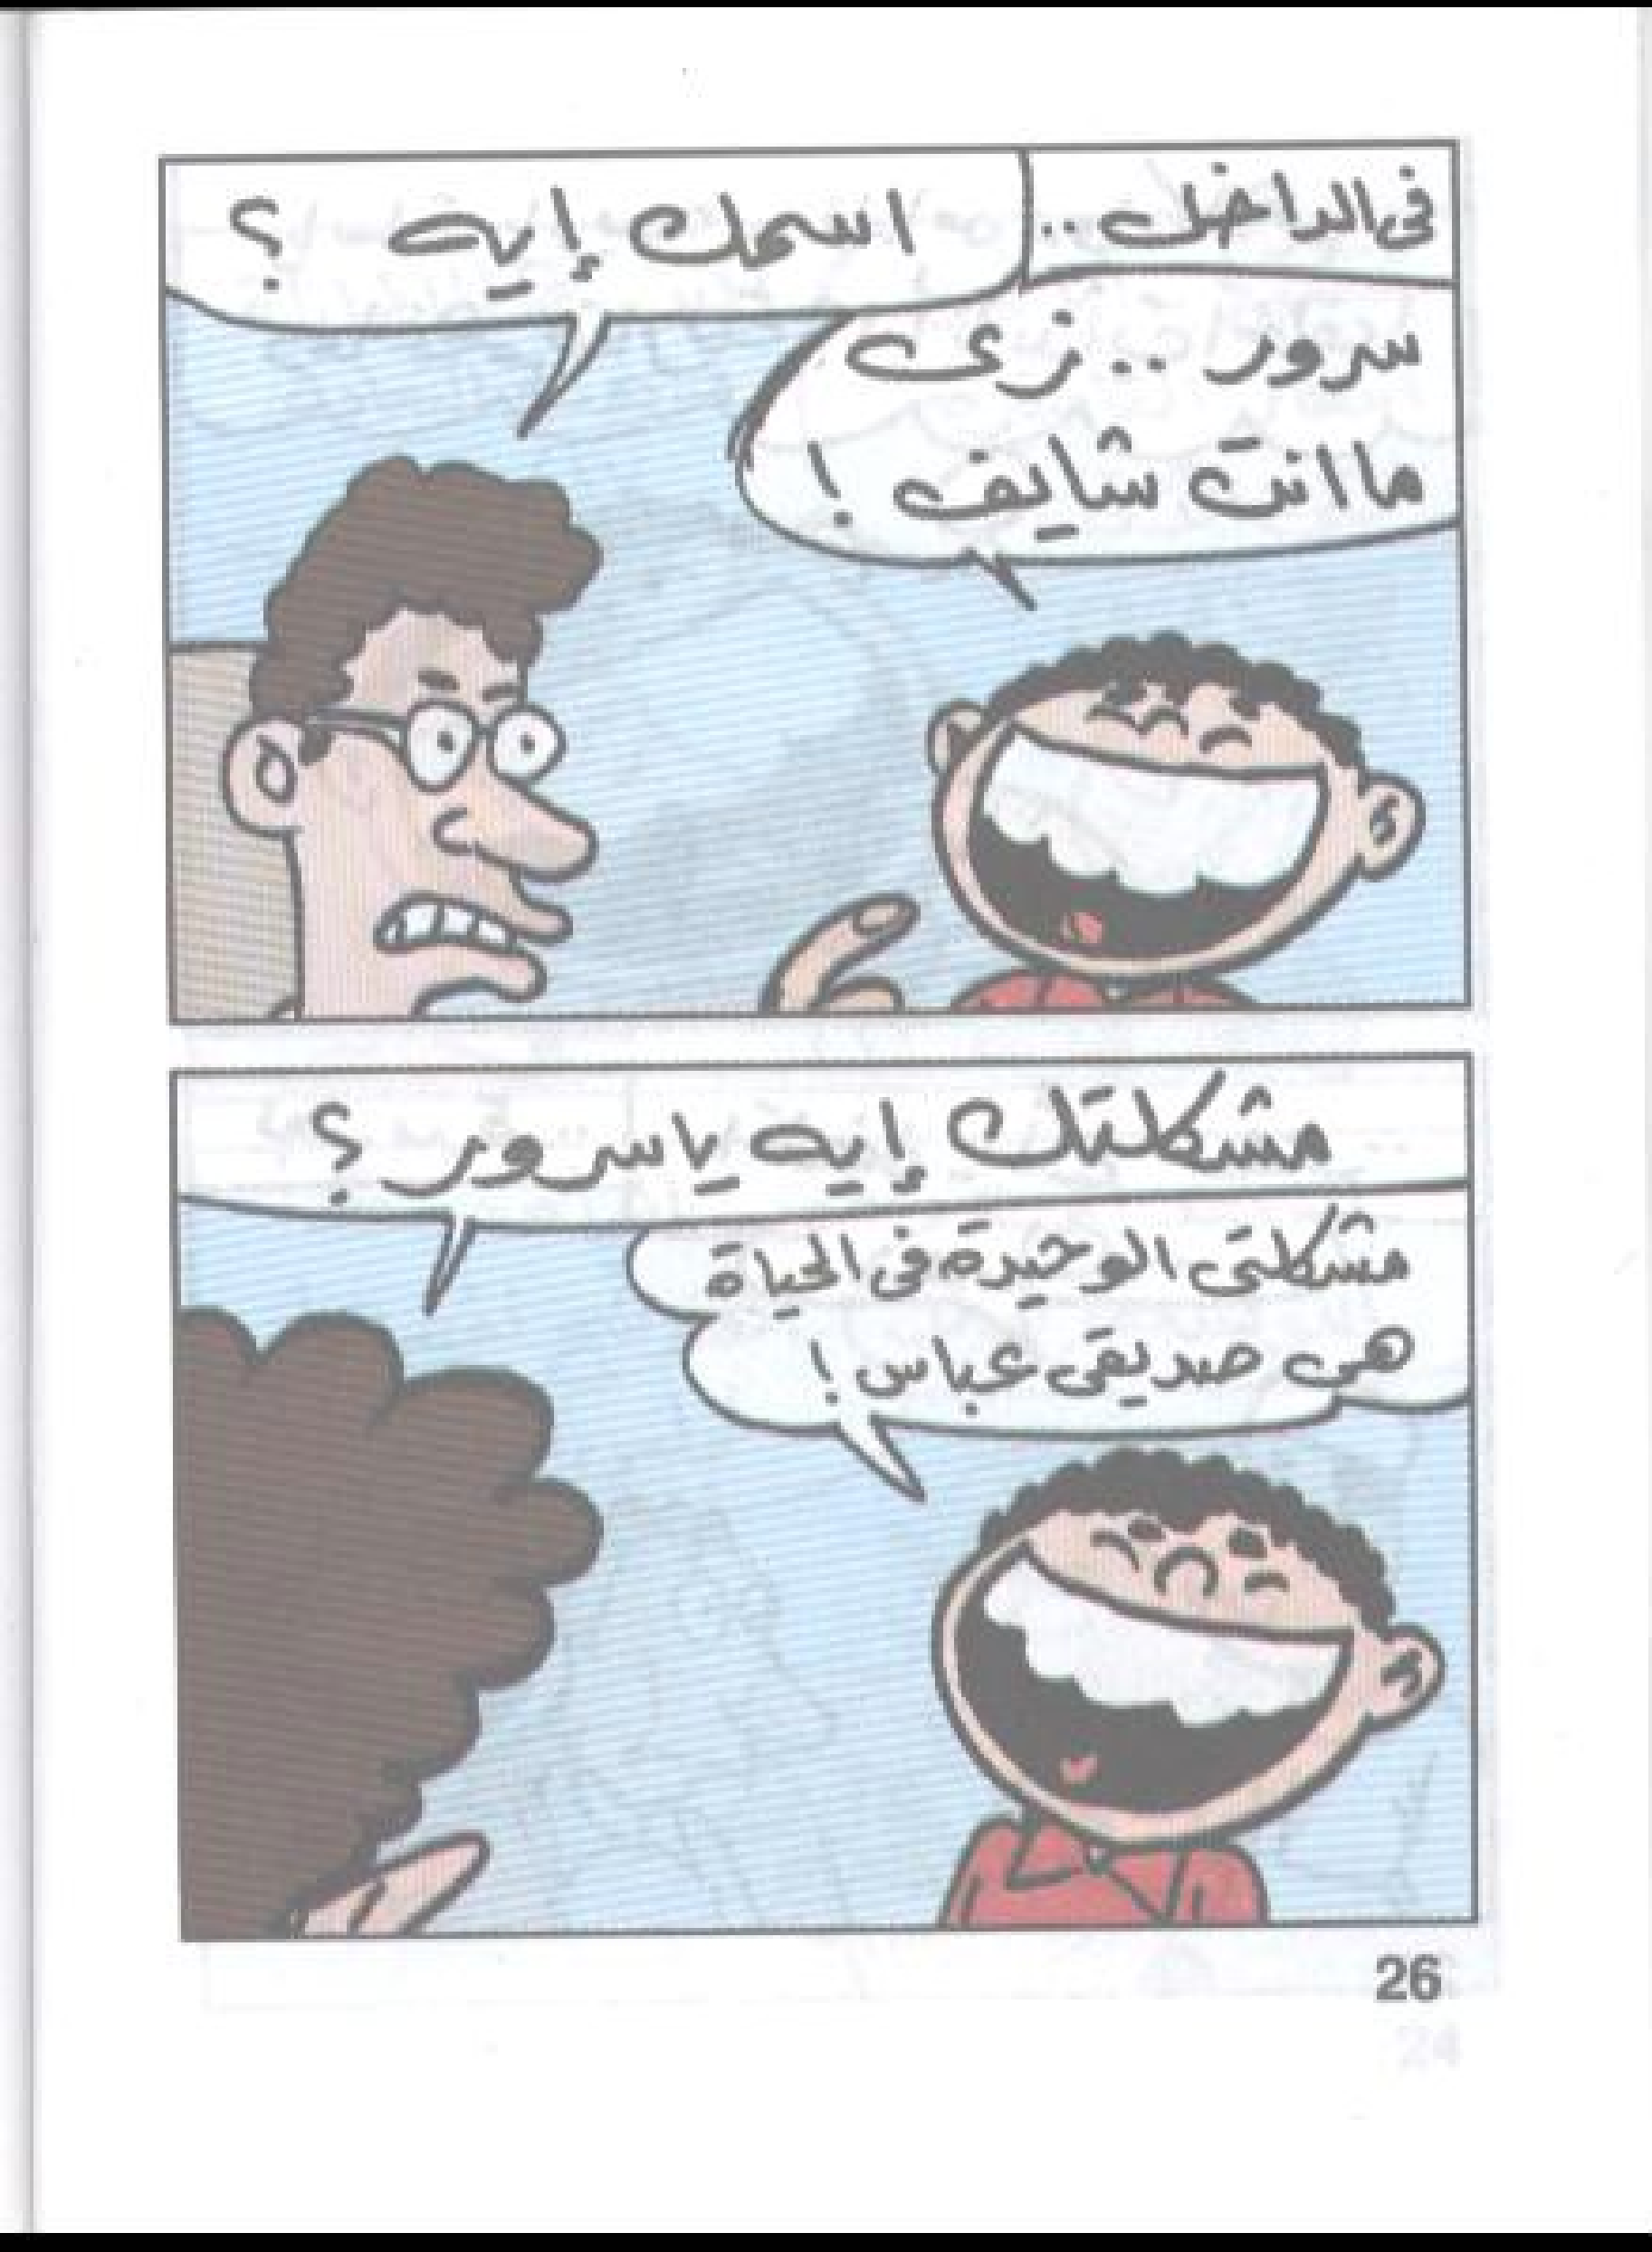 فى الداخل ..
اسمك إيه ؟
سرور .. زى
ما انت شايف !
مشكلتك إيه ياسرور ؟
مشكلتى الوحيدة فى الحياة
هى صديقى عباس !
26
24